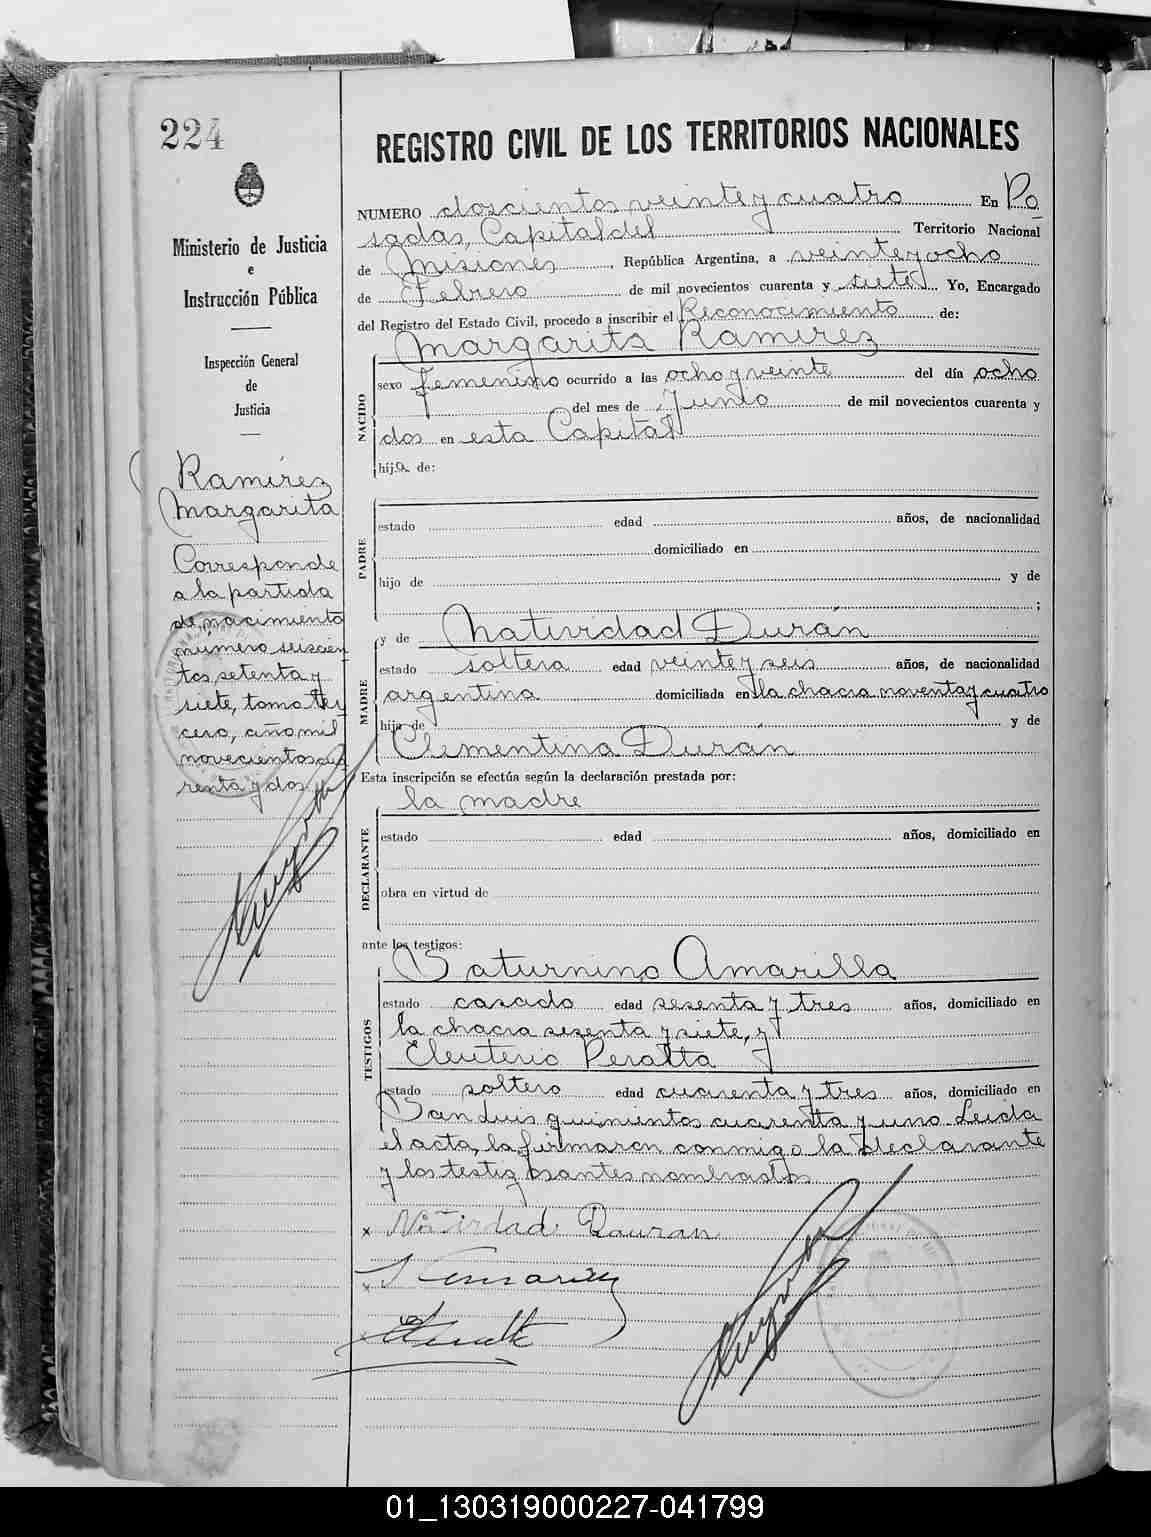 224
Ministerio de Justicia
e
Instrucción Pública
Inspección General
de
Justicia
Ramírez
Margarita
Corresponde
a la partida
de nacimiento
número seiscien
tos setenta y
siete, tomo ter
cero, año mil
novecientos cua
renta y dos
REGISTRO CIVIL DE LOS TERRITORIOS NACIONALES
NUMERO doscientos veinte y cuatro En Po
sadas, Capital del Territorio Nacional
de Misiones, República Argentina, a veinte y ocho
de Febrero de mil novecientos cuarenta y siete Yo, Encargado
del Registro del Estado Civil, procedo a inscribir el Reconocimiento de:
Margarita Ramirez
NACIDO
sexo femenino ocurrido a las ocho y veinte del día ocho
del mes de Junio de mil novecientos cuarenta y
dos en esta Capital
hija de:
PADRE
estado edad años, de nacionalidad
domiciliado en
hijo de y de
;
MADRE
y de Natividad Durán
estado soltera edad veinte y seis años, de nacionalidad
argentina domiciliada en la chacra noventa y cuatro
hija de y de
Clementina Durán
Esta inscripción se efectúa según la declaración prestada por:
la madre
DECLARANTE
estado edad años, domiciliado en
obra en virtud de
ante los testigos:
TESTIGOS
Saturnino Amarilla
estado casado edad sesenta y tres años, domiciliado en
la chacra sesenta y siete, y
Eleuterio Peralta
estado soltero edad cuarenta y tres años, domiciliado en
San Luis quinientos cuarenta y uno. Leida
el acta, la firmaron conmigo la declarante
y los testigos antes nombrados
x Natirdad Dauran
x
x
01_130319000227-041799